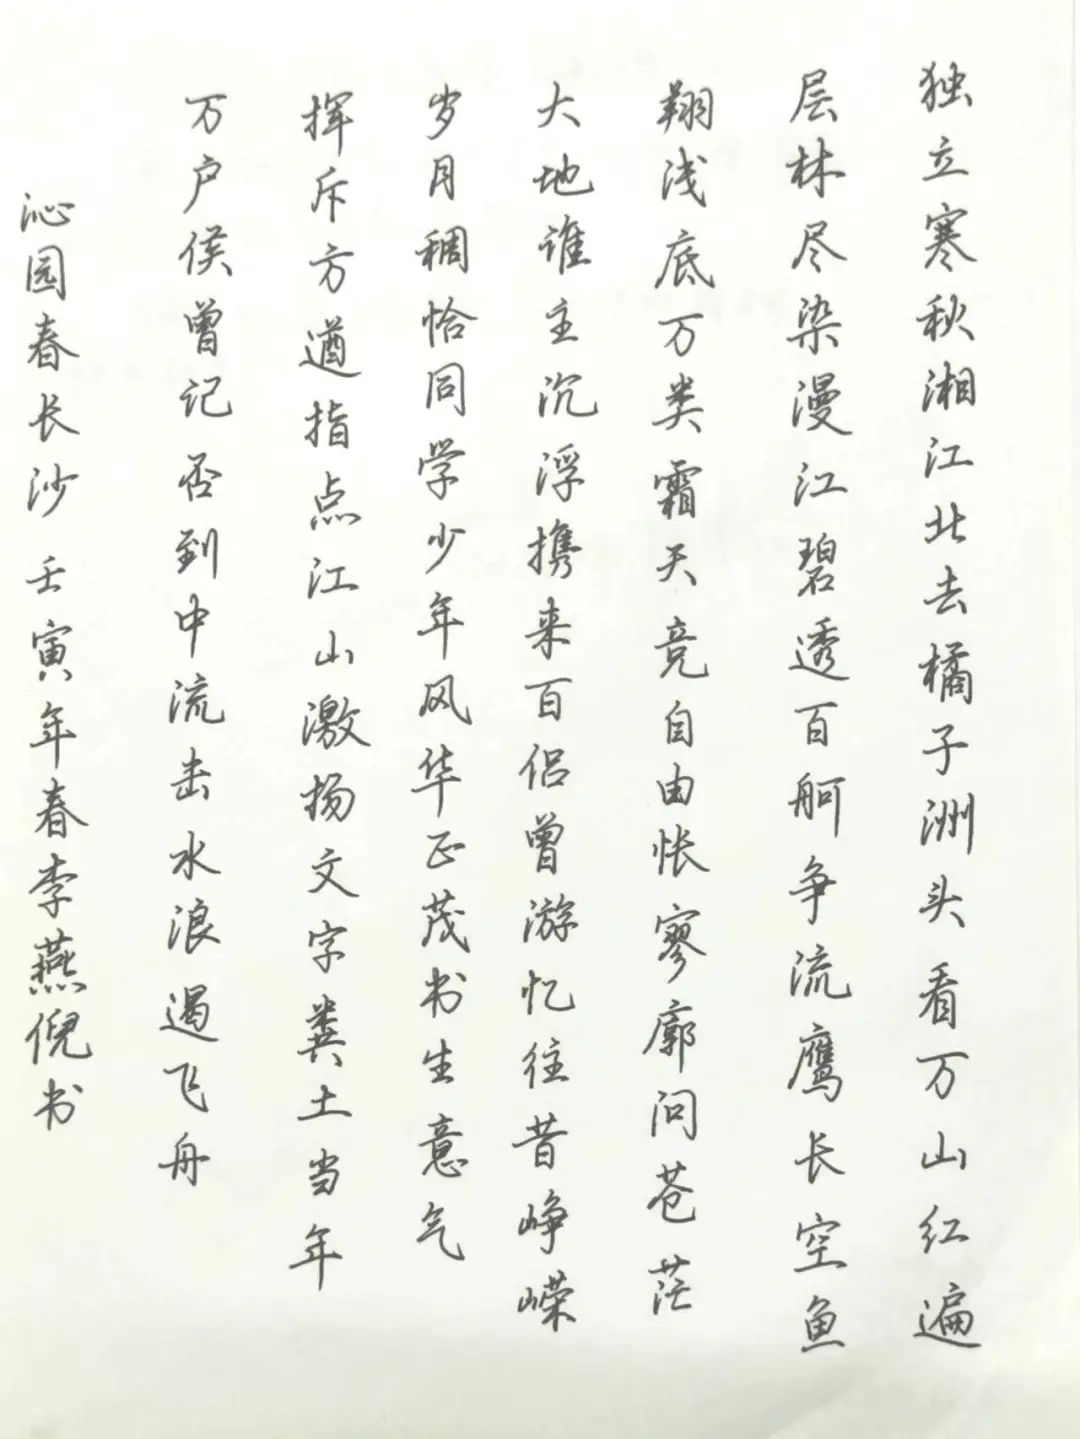 独立寒秋湘江北去橘子洲头看万山红遍
层林尽染漫江碧透百舸争流鹰长空鱼
翔浅底万类霜天竞自由怅寥廓问苍茫
大地谁主沉浮携来百侣曾游忆往昔峥嵘
岁月稠恰同学少年风华正茂书生意气
挥斥方遒指点江山激扬文字粪土当年
万户侯曾记否到中流击水浪遏飞舟
沁园春长沙 壬寅年春李燕倪书